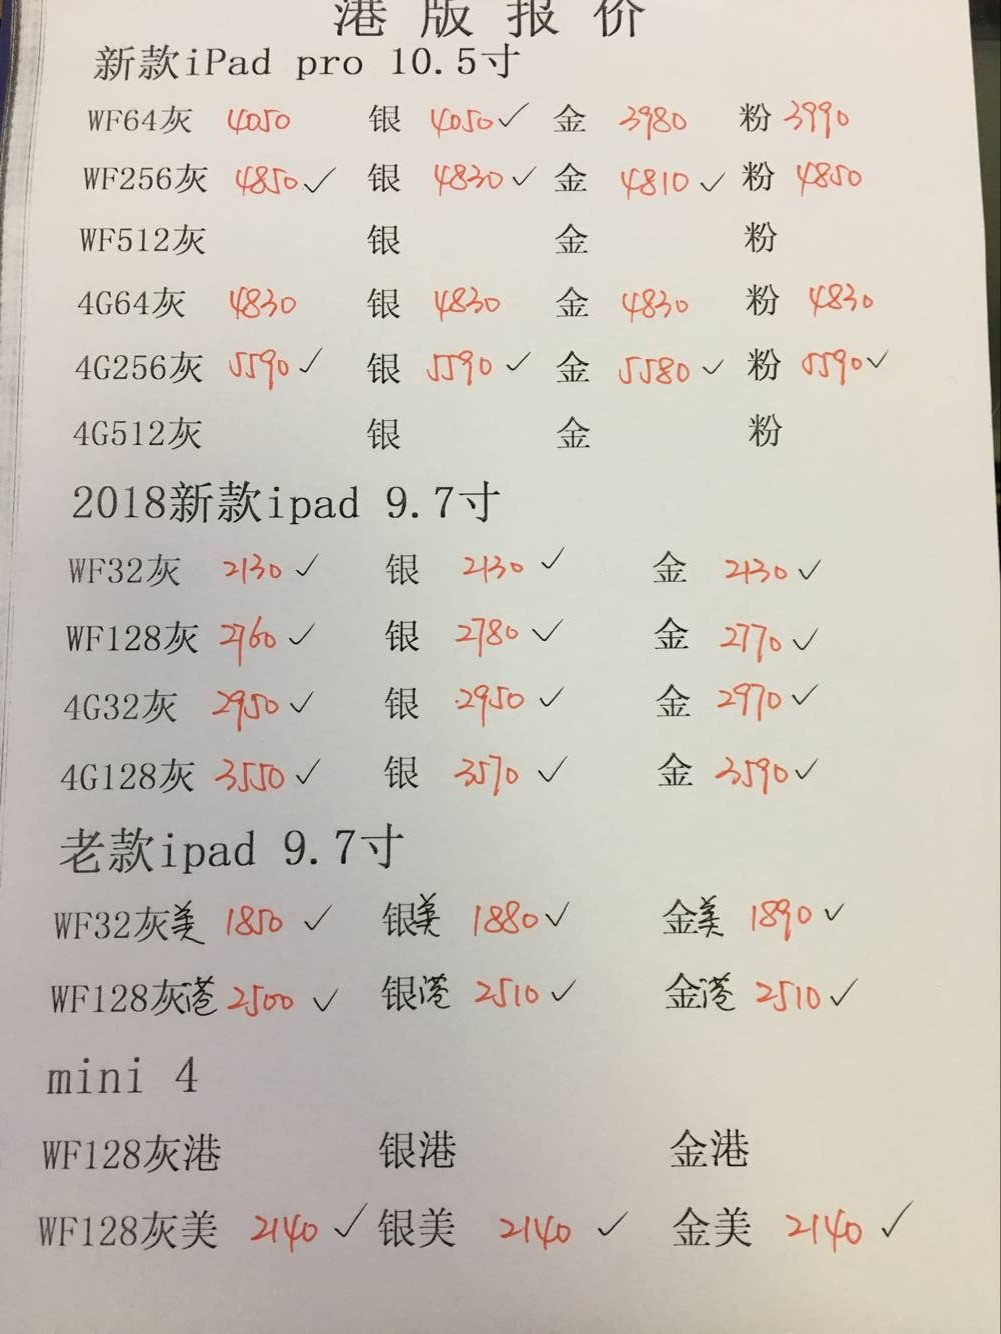 港版报价
新款iPad pro 10.5寸
WF64灰 4050 银 4050✓ 金 3980 粉 3990
WF256灰 4850✓ 银 4830✓ 金 4810✓ 粉 4850
WF512灰 银 金 粉
4G64灰 4830 银 4830 金 4830 粉 4830
4G256灰 5590✓ 银 5590✓ 金 5580✓ 粉 5590✓
4G512灰 银 金 粉
2018新款ipad 9.7寸
WF32灰 2130✓ 银 2130✓ 金 2130✓
WF128灰 2760✓ 银 2780✓ 金 2770✓
4G32灰 2950✓ 银 2950✓ 金 2970✓
4G128灰 3550✓ 银 3570✓ 金 3590✓
老款ipad 9.7寸
WF32灰美 1850✓ 银美 1880✓ 金美 1890✓
WF128灰港 2500✓ 银港 2510✓ 金港 2510✓
mini 4
WF128灰港 银港 金港
WF128灰美 2140✓ 银美 2140✓ 金美 2140✓